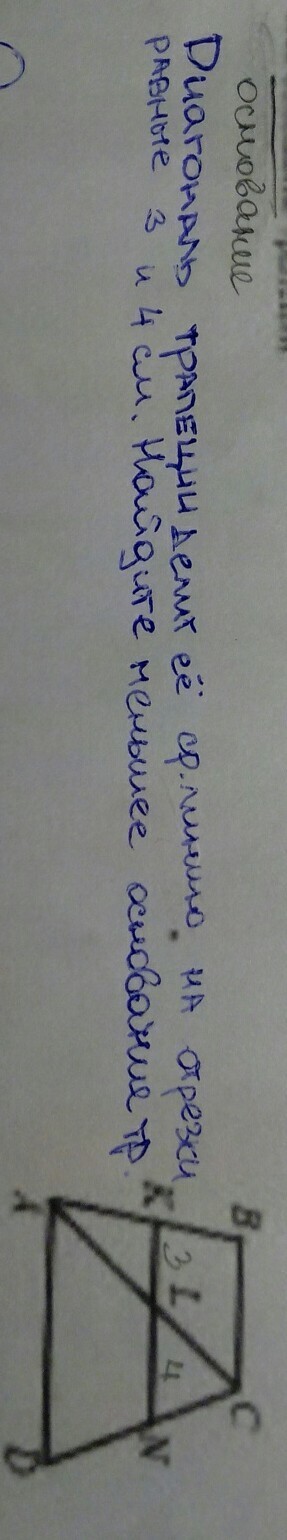 основание
Диагональ трапеции делит её ср. линию на отрезки
равные 3 и 4 см. Найдите меньшее основание тр.
B C
K 3 L 4 N
A D